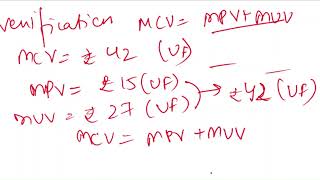 verification MCV = MPV + MUV
MCV = ₹ 42 (UF)
MPV = ₹ 15 (UF)
MUV = ₹ 27 (UF) → ₹ 42 (UF)
MCV = MPV + MUV